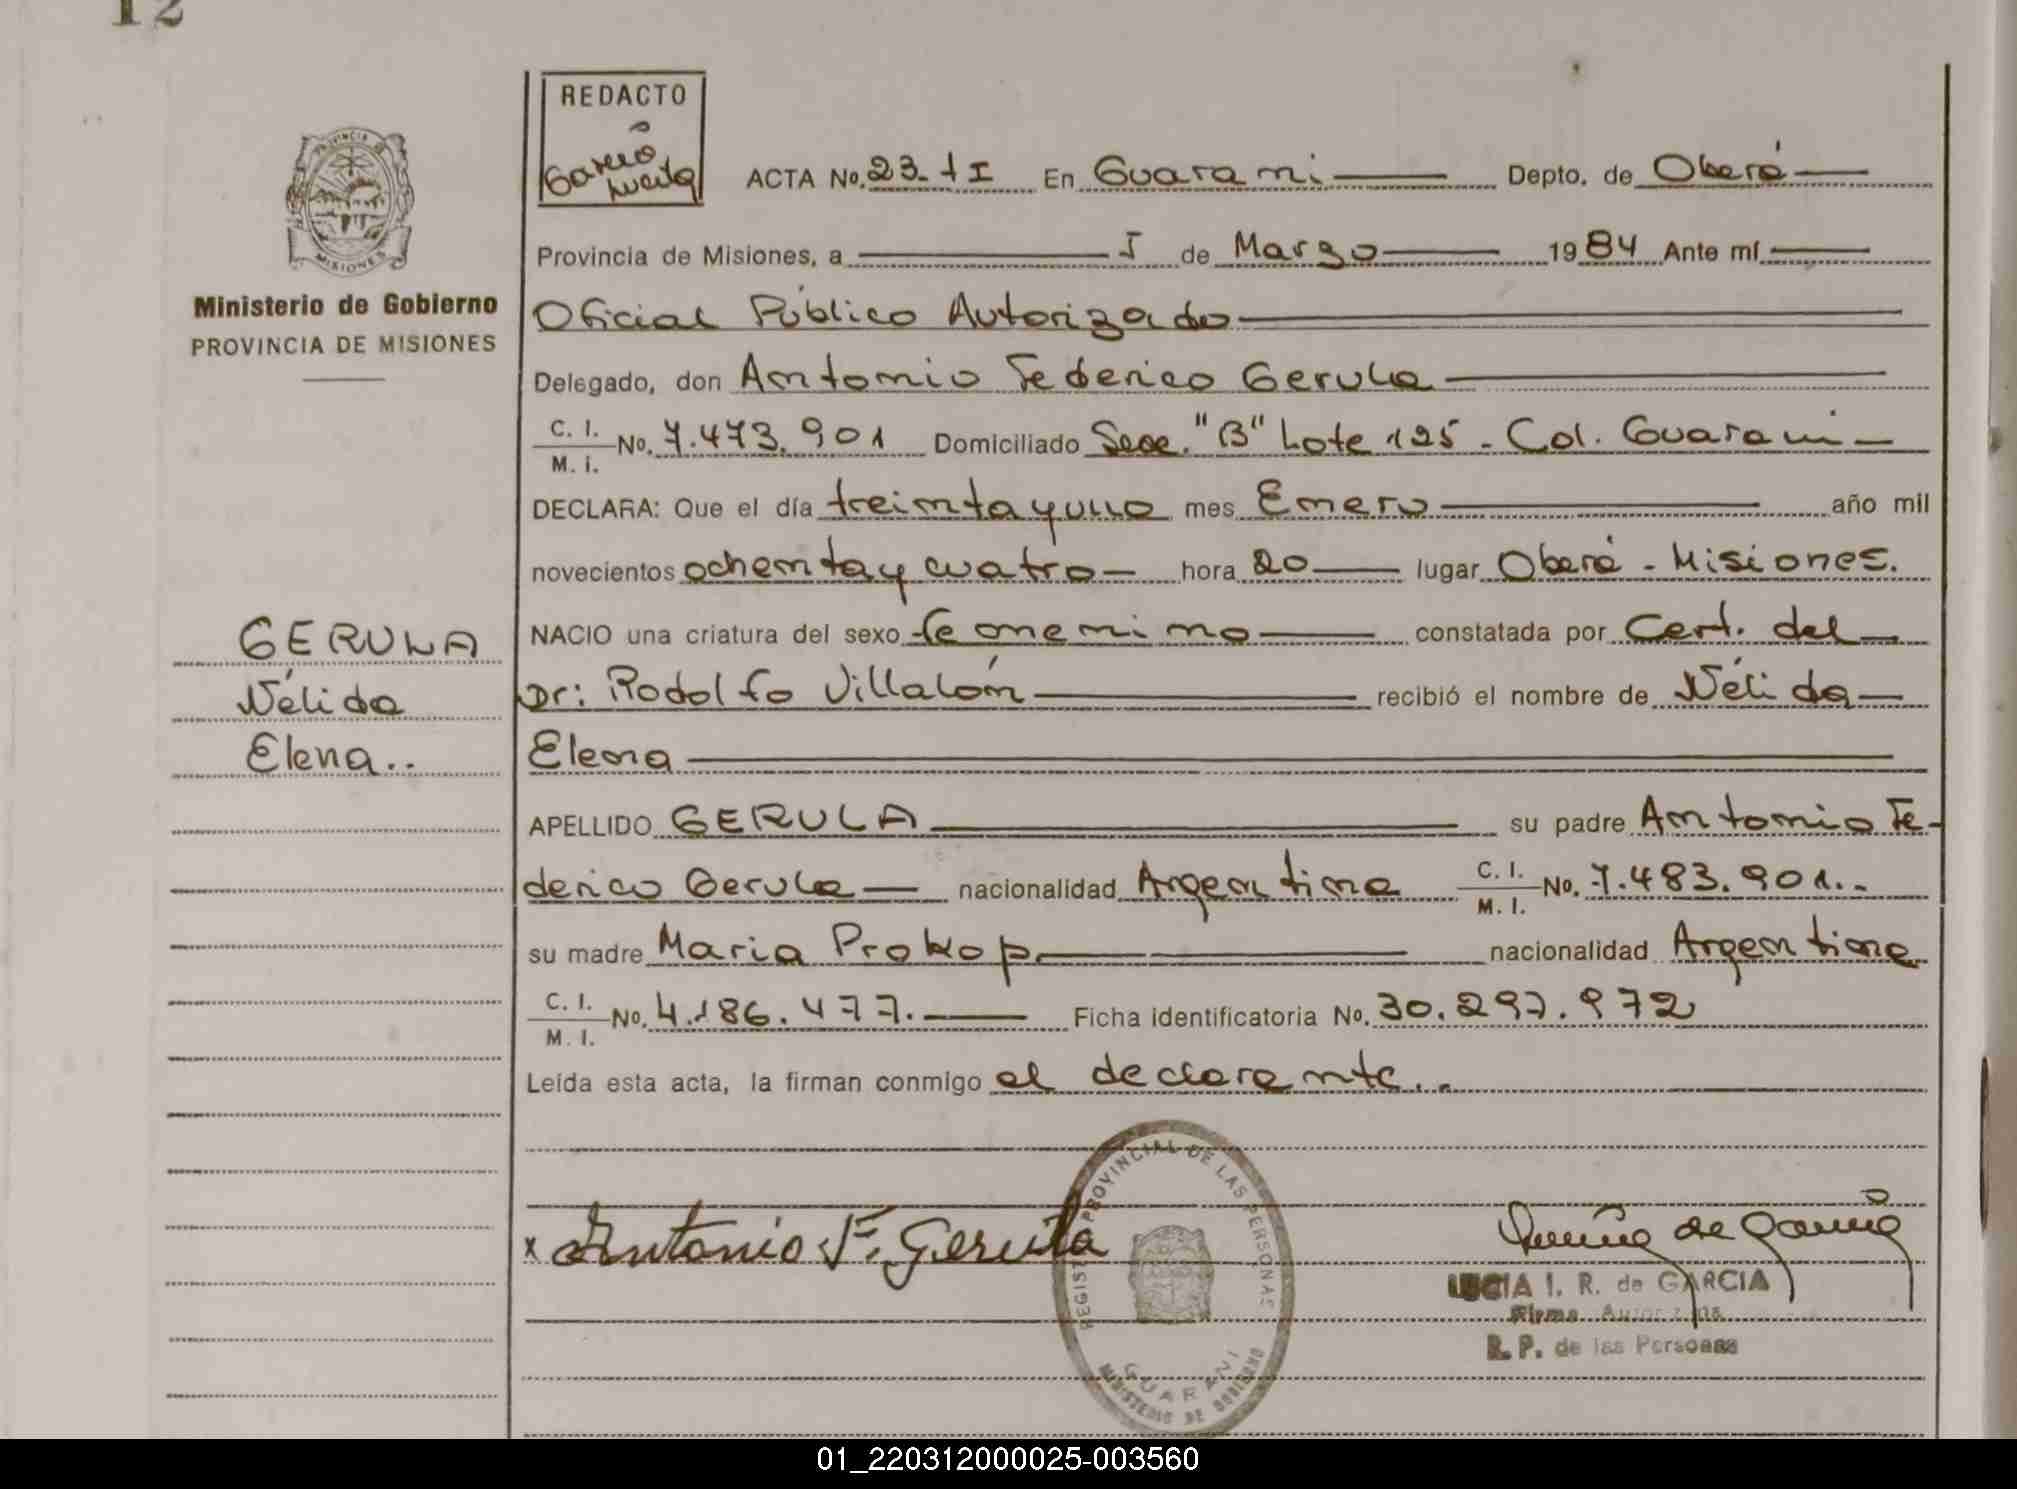 12
REDACTO
García Lucila
ACTA No. 23 - tI En Guaraní Depto. de Oberá
Provincia de Misiones, a I de Marzo 1984 Ante mí
Oficial Público Autorizado
Delegado, don Antonio Federico Gerula
C. I. M. I. No. 7.473.901 Domiciliado Secc. "B" Lote 125 - Col. Guaraní
DECLARA: Que el día treinta y uno mes Enero año mil
novecientos ochenta y cuatro hora 20 lugar Oberá - Misiones.
NACIO una criatura del sexo femenino constatada por Cert. del
Dr: Rodolfo Villalón recibió el nombre de Nélida
Elena
APELLIDO GERULA su padre Antonio Fe-
derico Gerula nacionalidad Argentina C. I. M. I. No. 7.483.901.-
su madre Maria Prokop nacionalidad Argentina
C. I. M. I. No. 4.186.477. Ficha identificatoria No. 30.297.972
Leída esta acta, la firman conmigo el declarante..
PROVINCIA DE
MISIONES
Ministerio de Gobierno
PROVINCIA DE MISIONES
GERULA
Nélida
Elena..
x Antonio F. Gerula
REGISTRO PROVINCIAL DE LAS PERSONAS
GUARANI
MINISTERIO DE GOBIERNO
de García
LUCIA I. R. de GARCIA
Firma Autorizada
R. P. de las Personas
01_220312000025-003560